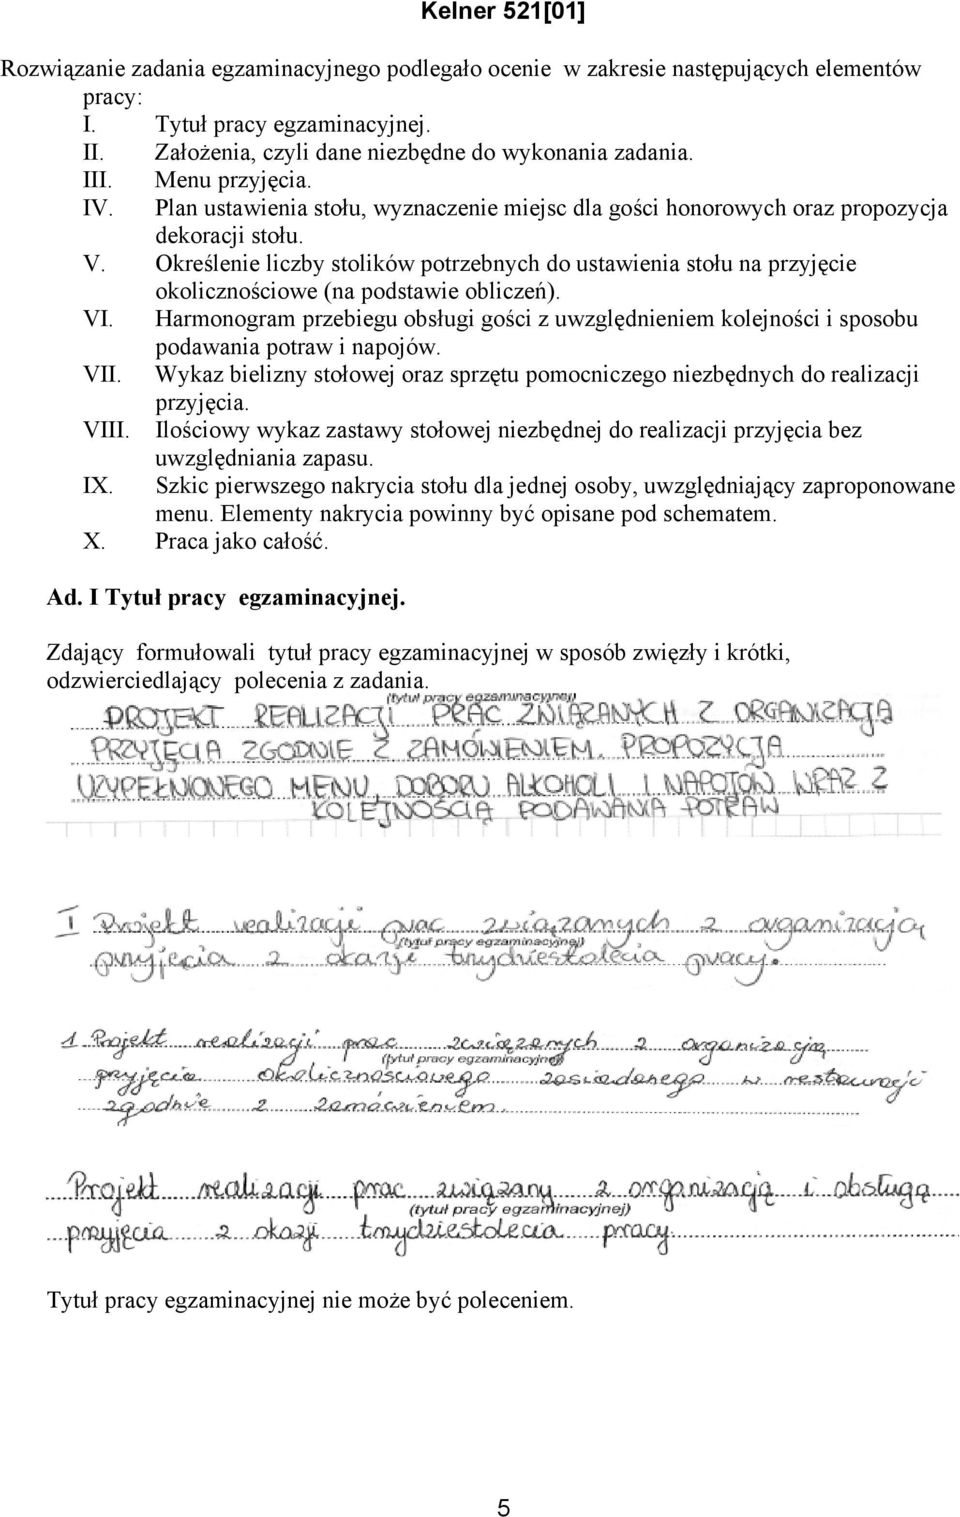 Kelner 521[01]
Rozwiązanie zadania egzaminacyjnego podlegało ocenie w zakresie następujących elementów
pracy:
I. Tytuł pracy egzaminacyjnej.
II. Założenia, czyli dane niezbędne do wykonania zadania.
III. Menu przyjęcia.
IV. Plan ustawienia stołu, wyznaczenie miejsc dla gości honorowych oraz propozycja
dekoracji stołu.
V. Określenie liczby stolików potrzebnych do ustawienia stołu na przyjęcie
okolicznościowe (na podstawie obliczeń).
VI. Harmonogram przebiegu obsługi gości z uwzględnieniem kolejności i sposobu
podawania potraw i napojów.
VII. Wykaz bielizny stołowej oraz sprzętu pomocniczego niezbędnych do realizacji
przyjęcia.
VIII. Ilościowy wykaz zastawy stołowej niezbędnej do realizacji przyjęcia bez
uwzględniania zapasu.
IX. Szkic pierwszego nakrycia stołu dla jednej osoby, uwzględniający zaproponowane
menu. Elementy nakrycia powinny być opisane pod schematem.
X. Praca jako całość.
Ad. I Tytuł pracy egzaminacyjnej.
Zdający formułowali tytuł pracy egzaminacyjnej w sposób zwięzły i krótki,
odzwierciedlający polecenia z zadania.
(tytuł pracy egzaminacyjnej)
PROJEKT REALIZACJI PRAC ZWIĄZANYCH Z ORGANIZACJĄ
PRZYJĘCIA ZGODNIE Z ZAMÓWIENIEM. PROPOZYCJA
UZUPEŁNIONEGO MENU, DOBORU ALKOHOLI I NAPOJÓW WRAZ Z
KOLEJNOŚCIĄ PODAWANIA POTRAW
I Projekt realizacji prac związanych z organizacją
(tytuł pracy egzaminacyjnej)
przyjęcia z okazji trzydziestolecia pracy.
1 Projekt realizacji prac związanych z organizacją
(tytuł pracy egzaminacyjnej)
przyjęcia okolicznościowego zasiadanego w restauracji
zgodnie z zamówieniem.
Projekt realizacji prac związany z organizacją i obsługą
(tytuł pracy egzaminacyjnej)
przyjęcia z okazji trzydziestolecia pracy.
Tytuł pracy egzaminacyjnej nie może być poleceniem.
5